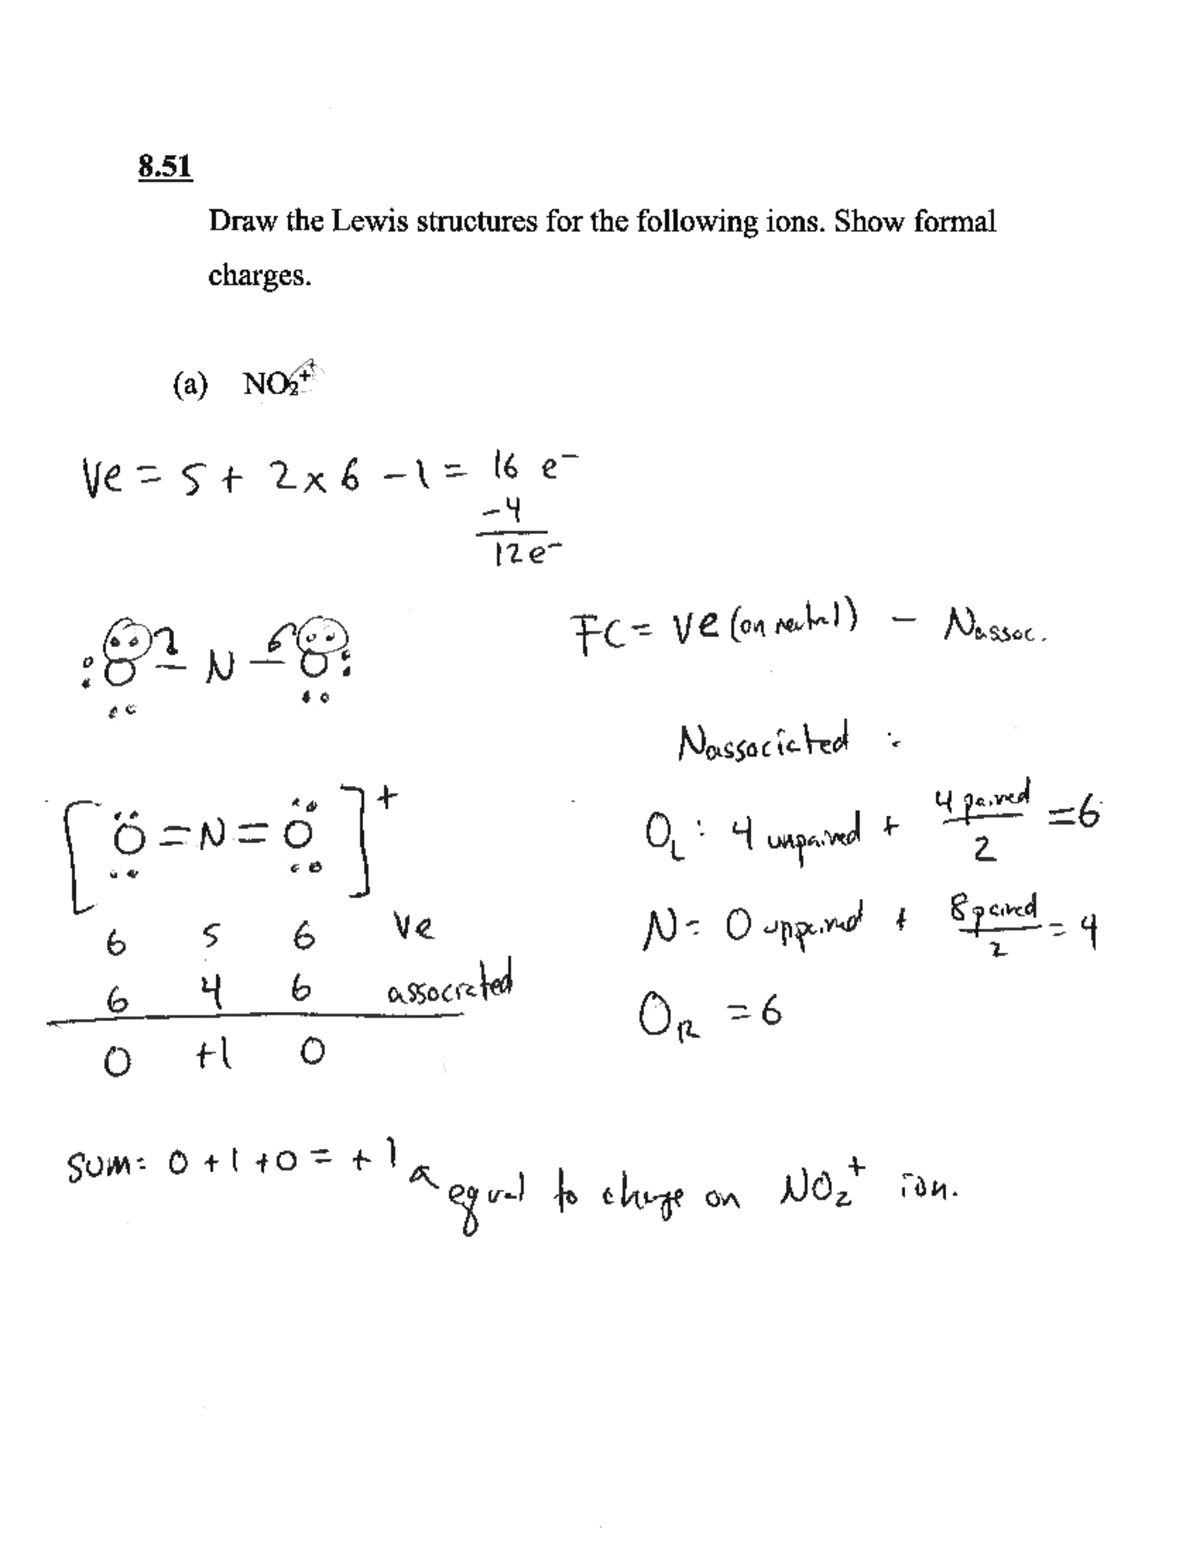 8.51
Draw the Lewis structures for the following ions. Show formal
charges.
(a) NO₂⁺
Ve = 5 + 2 x 6 - 1 = 16 e⁻
-4
12 e⁻
:O - N - O:
FC = Ve (on neutral) - Nassoc.
Nassociated :
[O = N = O]⁺
O_L : 4 unpaired + 4 paired / 2 = 6
6 5 6 Ve
N = 0 unpaired + 8 paired / 2 = 4
6 4 6 associated
O_R = 6
0 +1 0
Sum: 0 + 1 + 0 = + 1
equal to charge on NO₂⁺ ion.